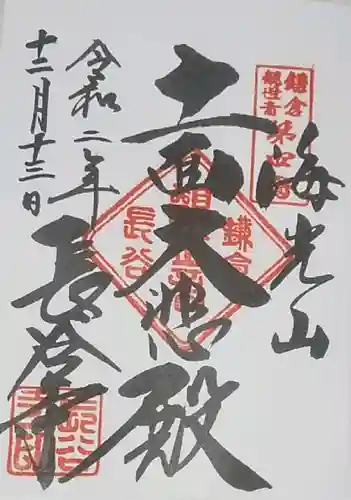 海光山
鎌倉
観世音
第四番
十一面大悲殿
鎌倉
長谷
長谷寺
令和二年
十二月十三日